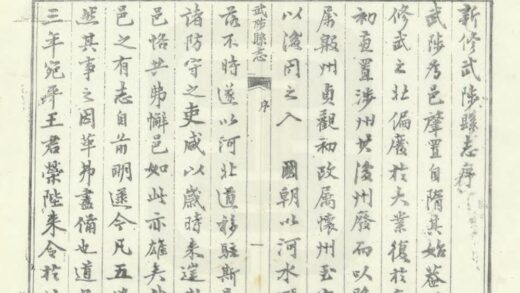 新修武陟縣志序
武陟為邑肇置自隋其始蓋
修武之北偏廢於大業復於
初直置涉州其後州廢而以
屬殷州貞觀初改屬懷州至
以後因之入 國朝以河水
武陟縣志 序 一
落不時遂以河北道移駐斯
諸防守之吏咸以歲時來
邑恪共弗懈邑如此亦雄
邑之有志自前明迄今凡五
然其事之因革弗盡備也道
三年宛平王君榮陛來令於